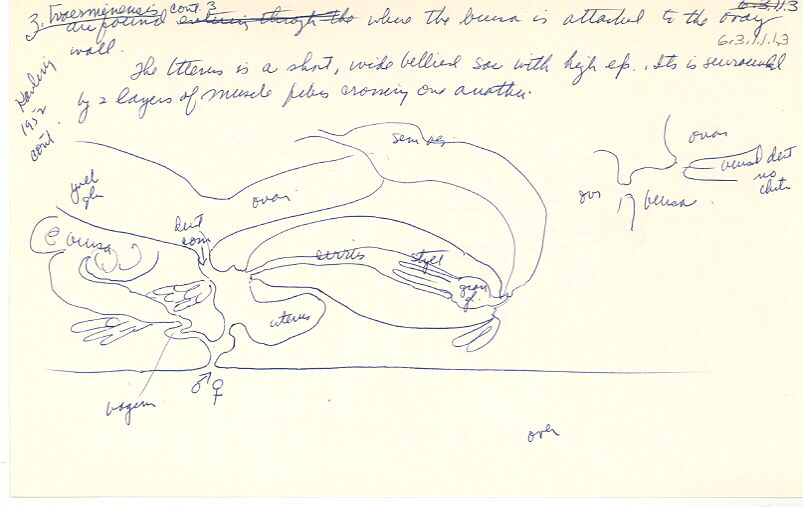 3. Evaesminensis cont. 3
6.3.11.3
6.3.1.1.1.3
are found entering through the where the bursa is attached to the ovary
wall.
The Uterus is a short, wide bellied sac with high ep.. Its is surround
by 2 layers of muscle fibes crossing one another.
1952
cont.
sem ves
ovar
bursal duct
no
chitin
ovi
bursa
yolk
glu
duct
com
ovari
bursa
cirrus
stylet
gran
gl.
uterus
♂♀
vagina
over